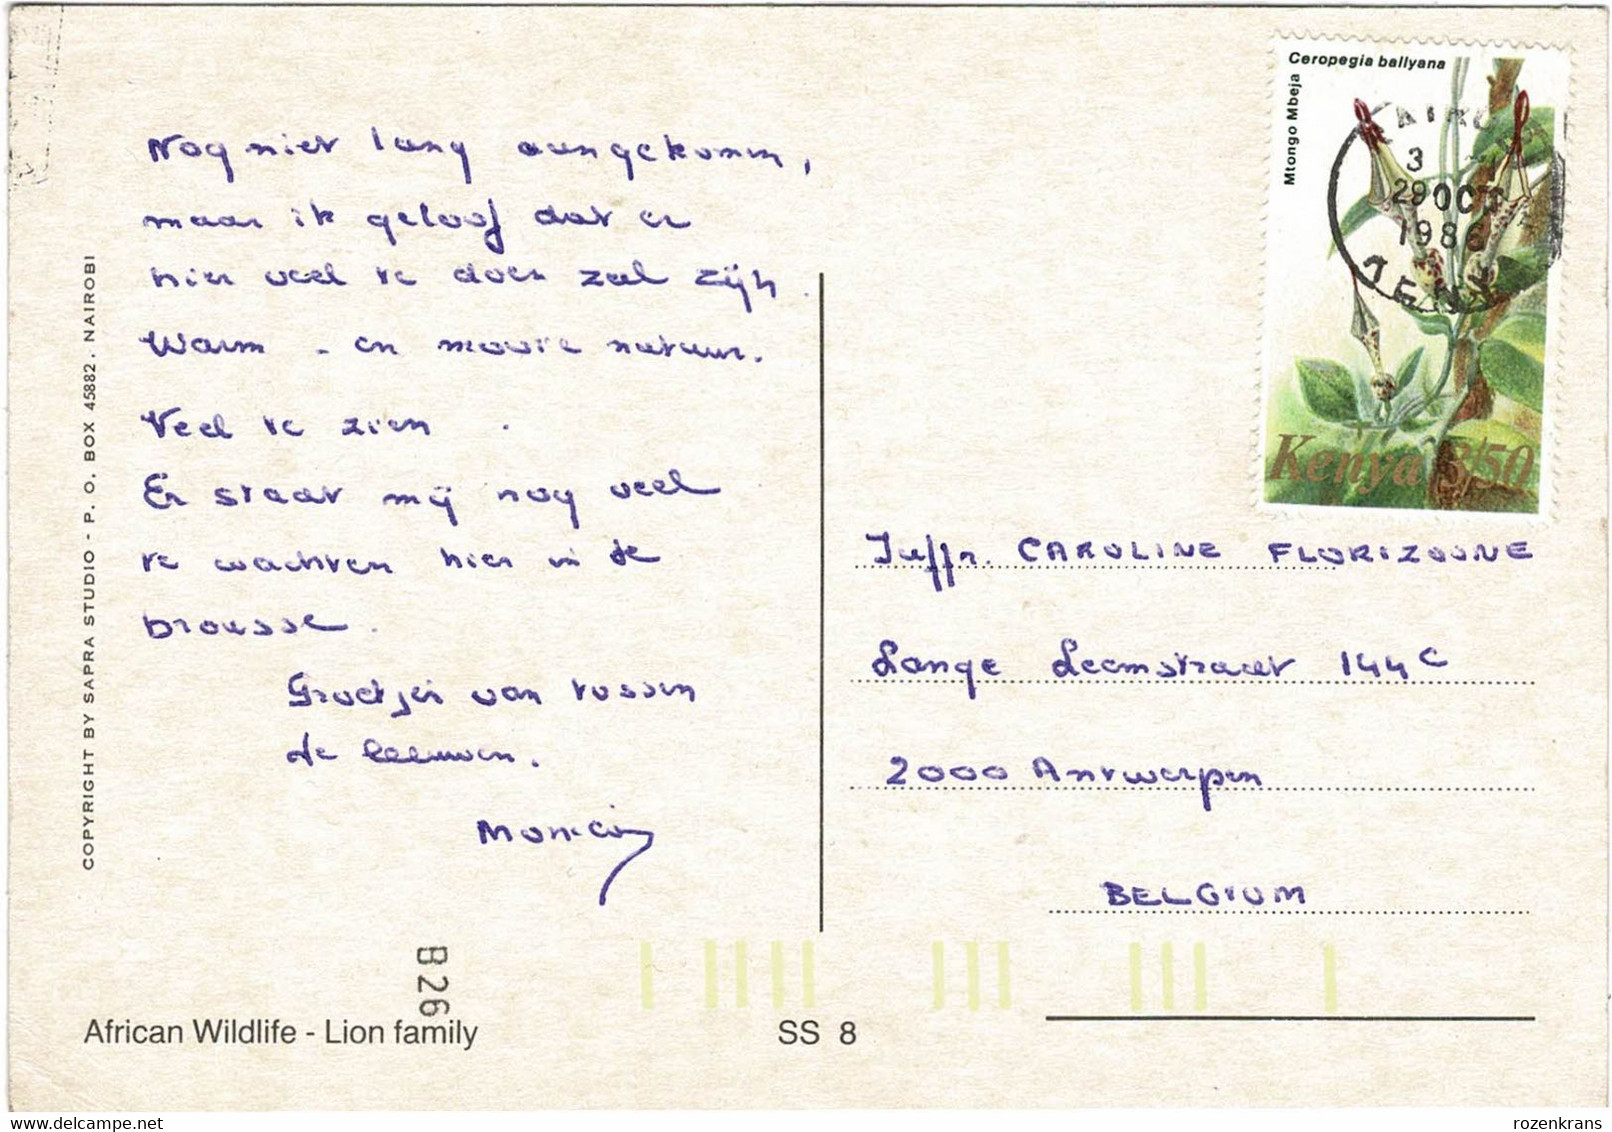 Nog niet lang aangekomen,
maar ik geloof dat er
hier veel te doen zal zijn.
Warm - en mooie natuur.
Veel te zien.
Er staat mij nog veel
te wachten hier in de
brousse.
Groetjes van tussen
de leeuwen.
COPYRIGHT BY SAPRA STUDIO - P. O. BOX 45882. NAIROBI
B26
African Wildlife - Lion family
SS 8
Ceropegia ballyana
Mtongo Mbeja
3
29 OCT
1986
Kenya 3/50
Juffr. CAROLINE FLORIZOONE
Lange Leemstraat 144C
2000 Antwerpen
BELGIUM
rozenkrans